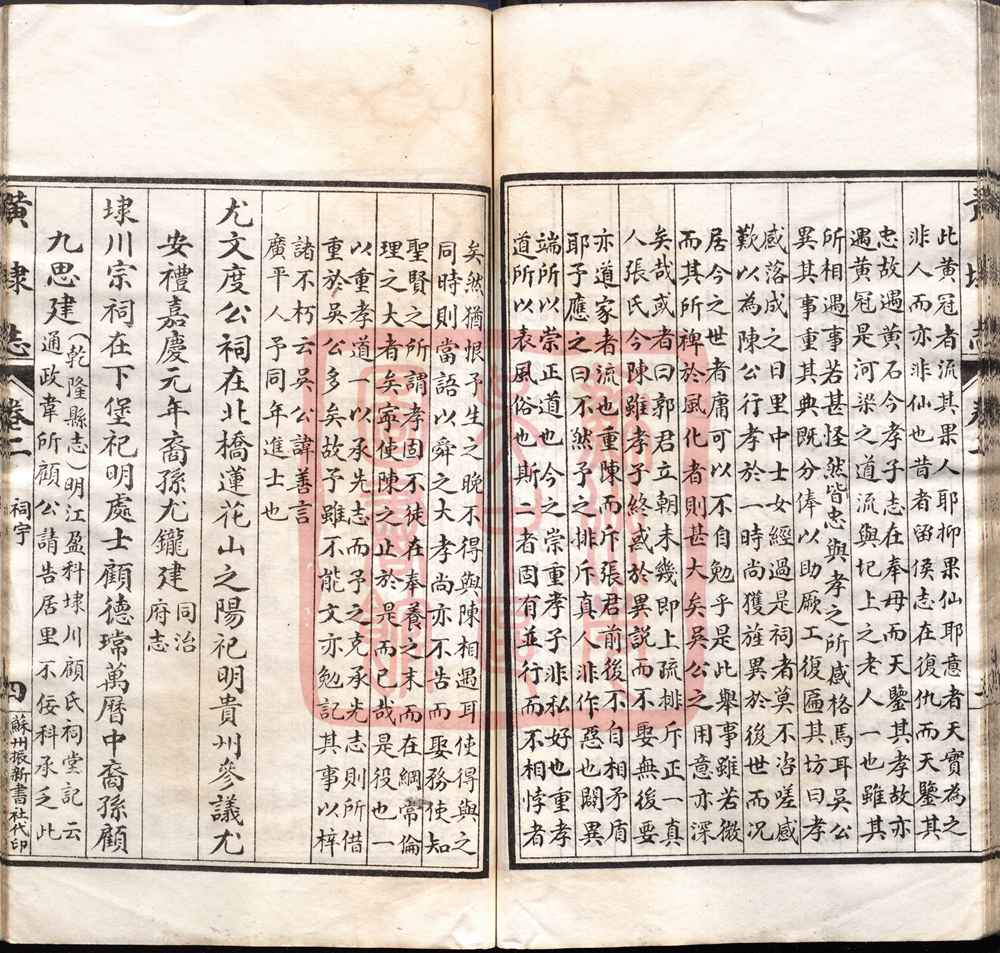 此黃冠者流其果人耶抑果仙耶意者天實為之
非人而亦非仙也昔者留侯志在復仇而天鑒其
忠故遇黃石今孝子志在奉母而天鑒其孝故亦
遇黃冠是河梁之道流與圯上之老人一也雖其
所相遇事若甚怪然皆忠與孝之所感格焉耳吳公
異其事重其典既分俸以助厥工復匾其坊曰孝
感落成之日里中士女經過是祠者莫不咨嗟感
歎以為陳公行孝於一時尚獲旌異於後世而況
居今之世者庸可以不自勉乎是此舉事雖若微
而其所裨於風化者則甚大矣吳公之用意亦深
矣哉或者曰郭君立朝未幾即上疏排斥正一真
人張氏今陳雖孝子終惑於異說而不娶無後要
亦道家者流也重陳而斥張君前後不自相矛盾
耶予應之曰不然予之排斥真人非作惡也闢異
端所以崇正道也今之崇重孝子非私好也重孝
道所以表風俗也斯二者固有並行而不相悖者
矣然猶恨予生之晚不得與陳相遇耳使得與之
同時則當語以舜之大孝尚亦不告而娶務使知
聖賢之所謂孝固不徒在奉養之末而在綱常倫
理之大者矣寧使陳之止於是而已哉是役也一
以重孝道一以承先志而予之克承先志則所借
重於吳公多矣故予雖不能文亦勉記其事以梓
諸不朽云吳公諱善言
廣平人予同年進士也
尤文度公祠在北橋蓮花山之陽祀明貴州參議尤
安禮嘉慶元年裔孫尤鑨建同治
府志
埭川宗祠在下堡祀明處士顧德璋萬曆中裔孫顧
九思建（乾隆縣志）明江盈科埭川顧氏祠堂記云
通政韋所顧公請告居里不佞科承乏此
黃埭志
卷二
祠宇
四
蘇州振新書社代印